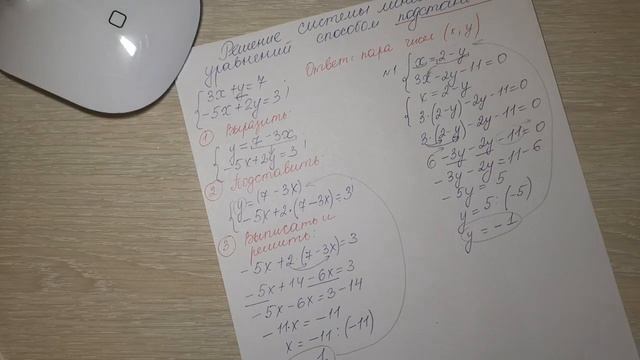 Решение системы
уравнений способом подстановки
Ответ: пара чисел (x, y)
3x + y = 7
-5x + 2y = 3
① Выразить:
y = 7 - 3x
-5x + 2y = 3
② Подставить:
y = (7 - 3x)
-5x + 2·(7 - 3x) = 3
③ Выписать и
решить:
-5x + 2·(7 - 3x) = 3
-5x + 14 - 6x = 3
-5x - 6x = 3 - 14
-11x = -11
x = -11 : (-11)
1
№1
x = 2 - y
3x - 2y - 11 = 0
x = 2 - y
3·(2 - y) - 2y - 11 = 0
3·(2 - y) - 2y - 11 = 0
6 - 3y - 2y - 11 = 0
-3y - 2y = 11 - 6
-5y = 5
y = 5 : (-5)
y = -1